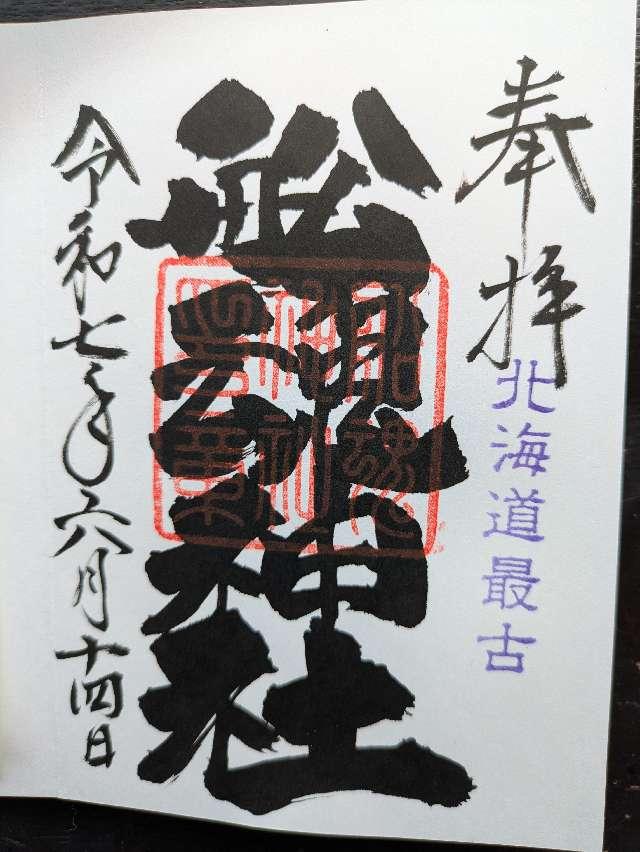 奉拝
北海道最古
船魂神社
船魂神社
令和七年六月十四日